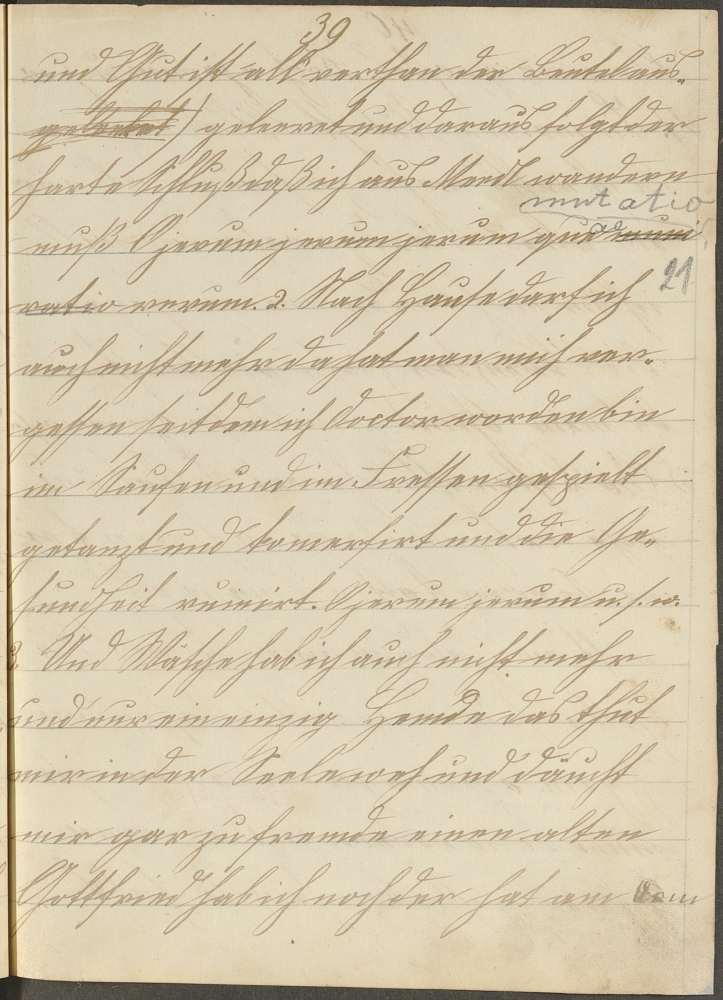 39
und Gut ist all verthan der Beutel aus-
geleeret) geleeret und daraus folgt der
harte Schluß daß ich aus Merdl wandern
mutatio
muß O jerum jerum jerum que muni
21
ratio rerum. 2. Nach Hause darf ich
auch nicht mehr da hat man mich ver-
gessen seitdem ich Doctor worden bin
im Saufen und im Fressen gespielt
getanzt und komersirt und die Ge-
sundheit ruinirt. O jerum jerum u. s. w.
3. Und Wäsche hab ich auch nicht mehr
und nur ein einzig Hemde das thut
mir in der Seele weh und däucht
mir gar zu fremde einen alten
Gottfried hab ich noch der hat am